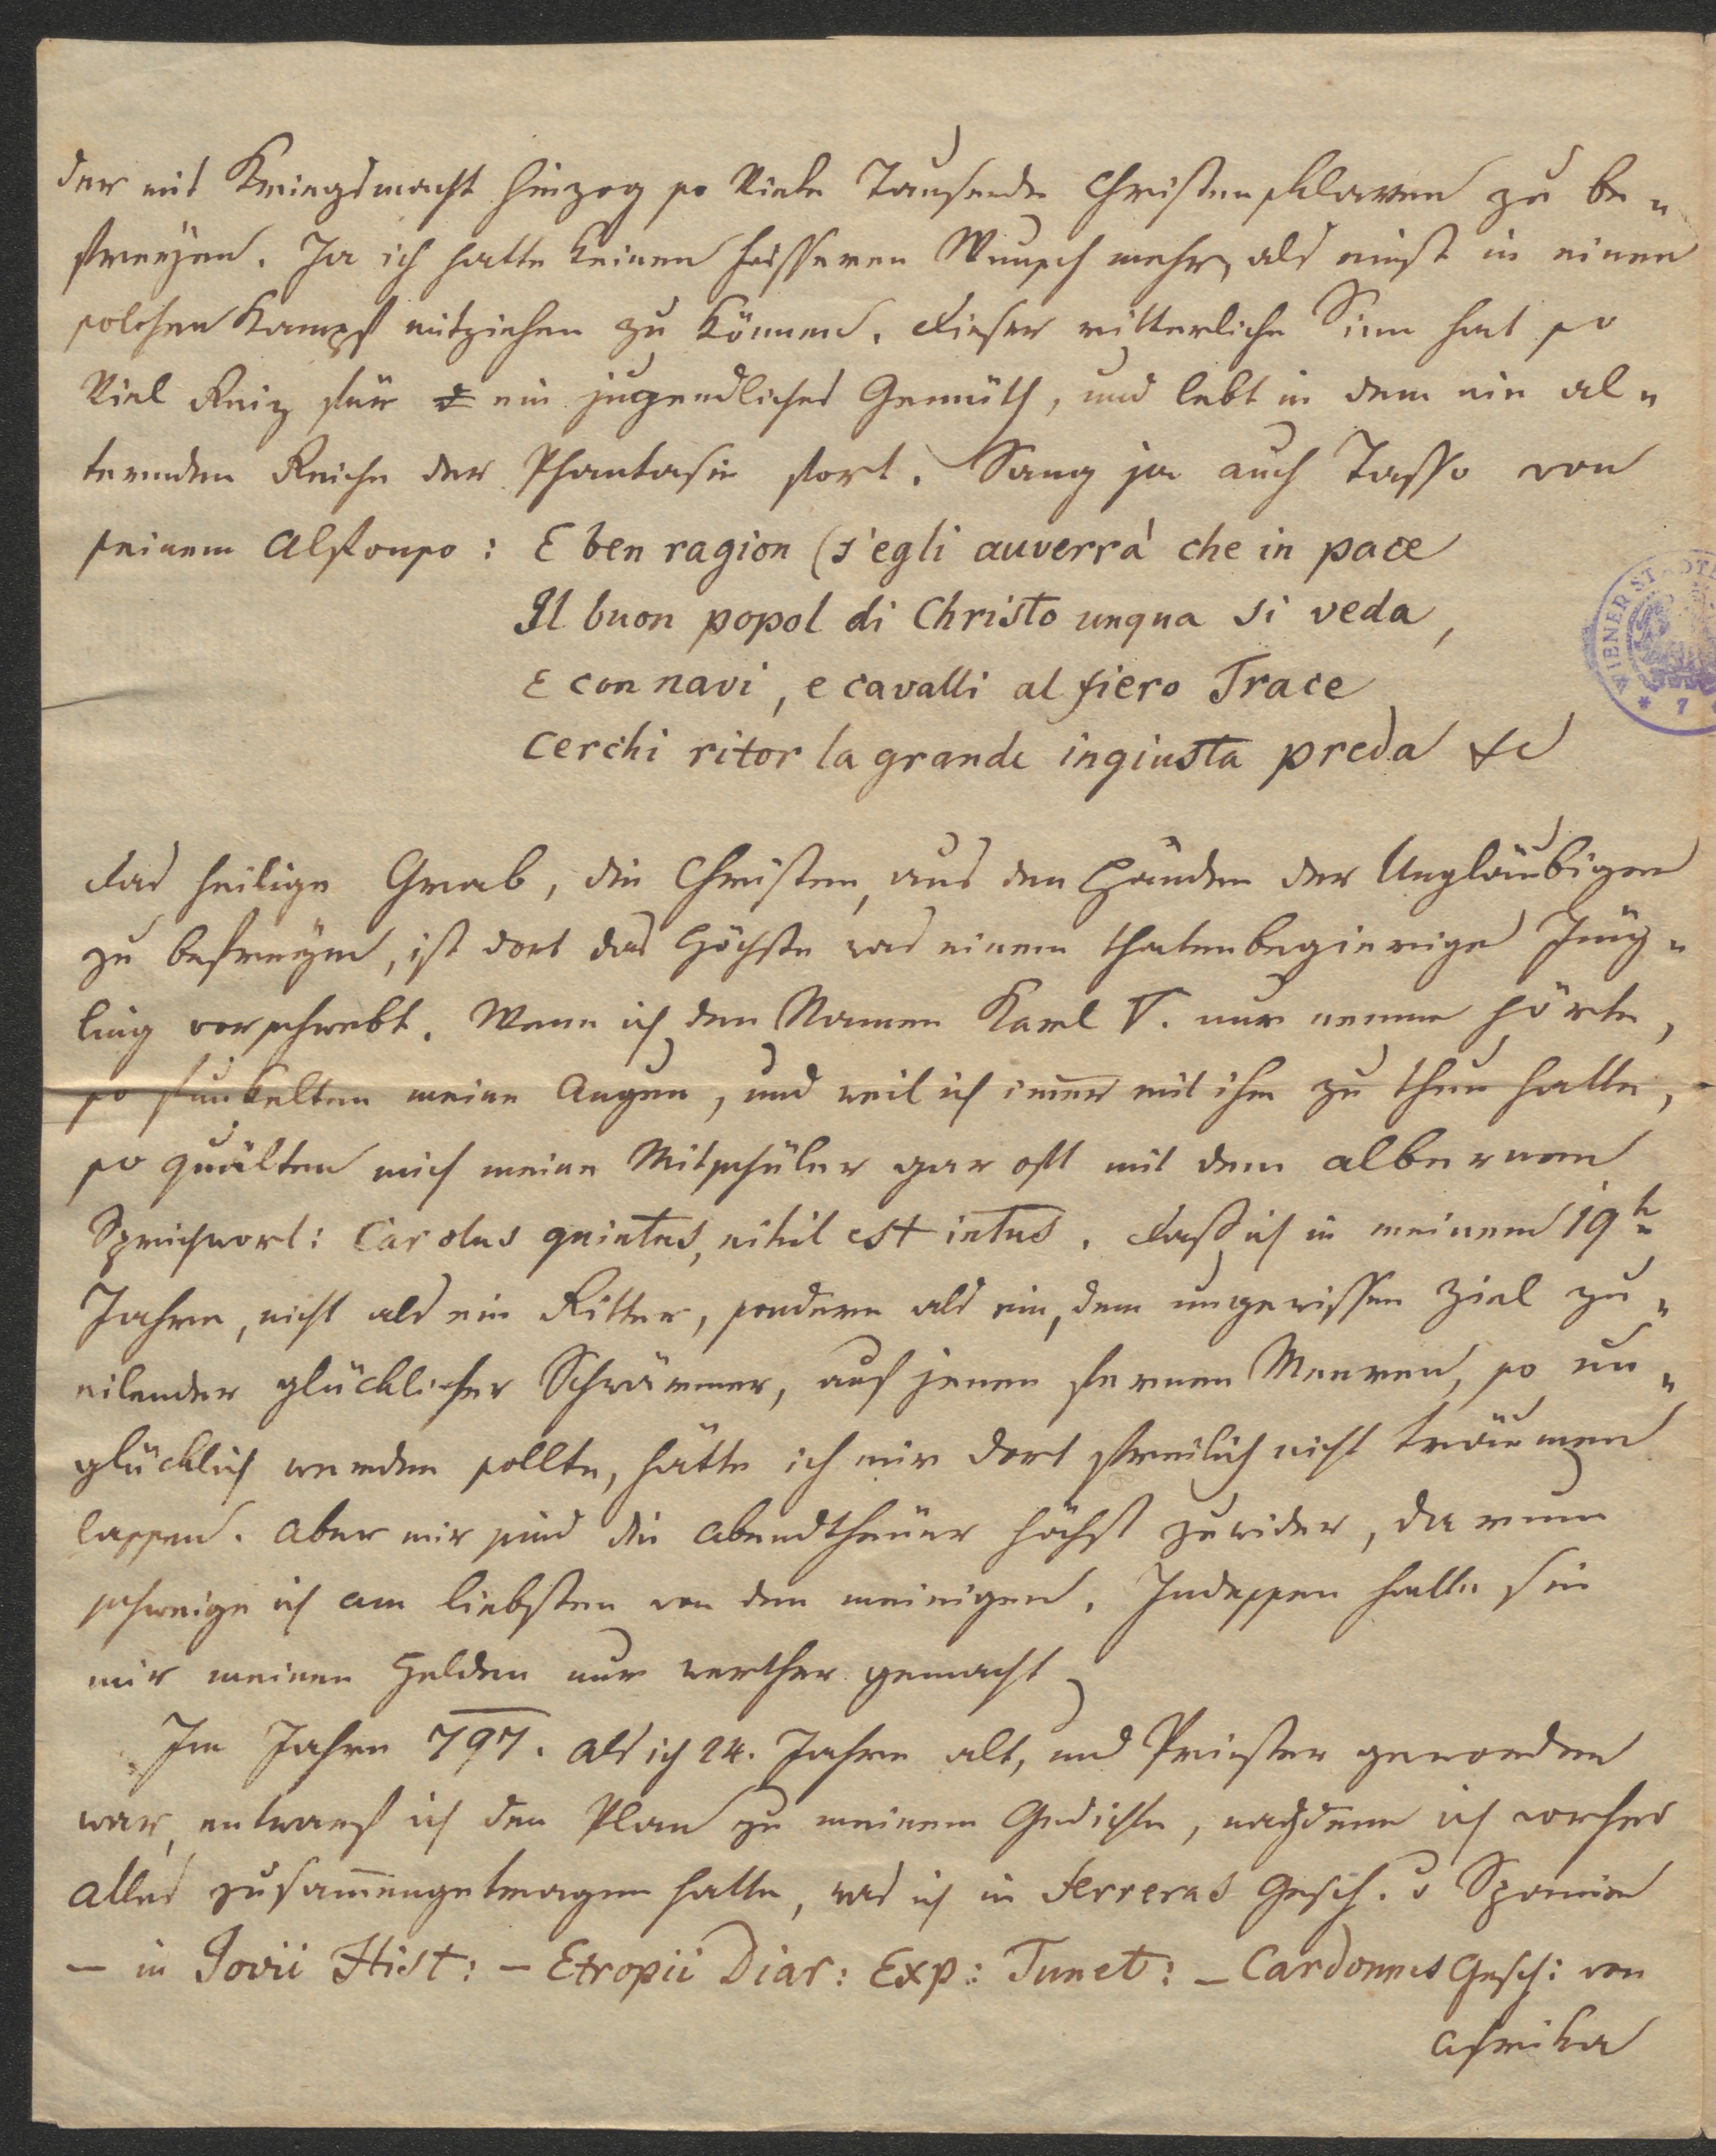 der mit Kriegsmacht hinzog so viele Tausende Christensklaven zu be„
freyen. Ja ich hatte keinen heisseren Wunsch mehr, als einst in einen
solchen Kampf mitziehen zu können. Dieser ritterliche Sinn hat so
viel Reiz für ein jugendliches Gemüth, und lebt in dem nie al„
ternden Reiche der Phantasie fort. Sang ja auch Tasso von
seinem Alfonso: E ben ragion (s'egli auverrà che in pace
Il buon popol di Christo unqua si veda,
E con navi, e cavalli al fiero Trace
Cerchi ritor la grande ingiusta preda &c
Das heilige Grab, die Christen, aus den Händen der Ungläubigen
zu befreyen, ist dort das Höchste was einem thatenbegierige Jüng„
ling vorschwebt. Wenn ich den Namen Karl V. nur nennen hörte,
so funkelten meine Augen, und weil ich im̅er mit ihm zu thun hatte,
so quälten mich meine Mitschüler gar oft mit dem albernen
Sprichwort: Carolus quintus, nihil est intus. Daß ich in meinem 19t
Jahre, nicht als ein Ritter, sondern als ein, dem ungewissen Ziel zu„
eilender glücklicher Schwärmer, auf jenen fernen Meeren, so un„
glücklich werden sollte, hätte ich mir dort freilich nicht träumen
lassen. Aber mir sind die Abendtheuer höchst zuwider, darum
schweige ich am liebsten von den meinigen. Indessen hatte sie
mir meinen Helden nur werther gemacht
Im Jahre 797. als ich 24. Jahre alt, und Priester geworden
war, entwarf ich den Plan zu meinem Gedichte, nachdem ich vorher
alles zusam̅engetragen hatte, was ich in Ferreras Gesch. v Spanien
– in Jovii Hist: – Etropii Diar: Exp: Tunet: – Cardonnes Gesch: von
Afrika
WIENER STADT
* 7